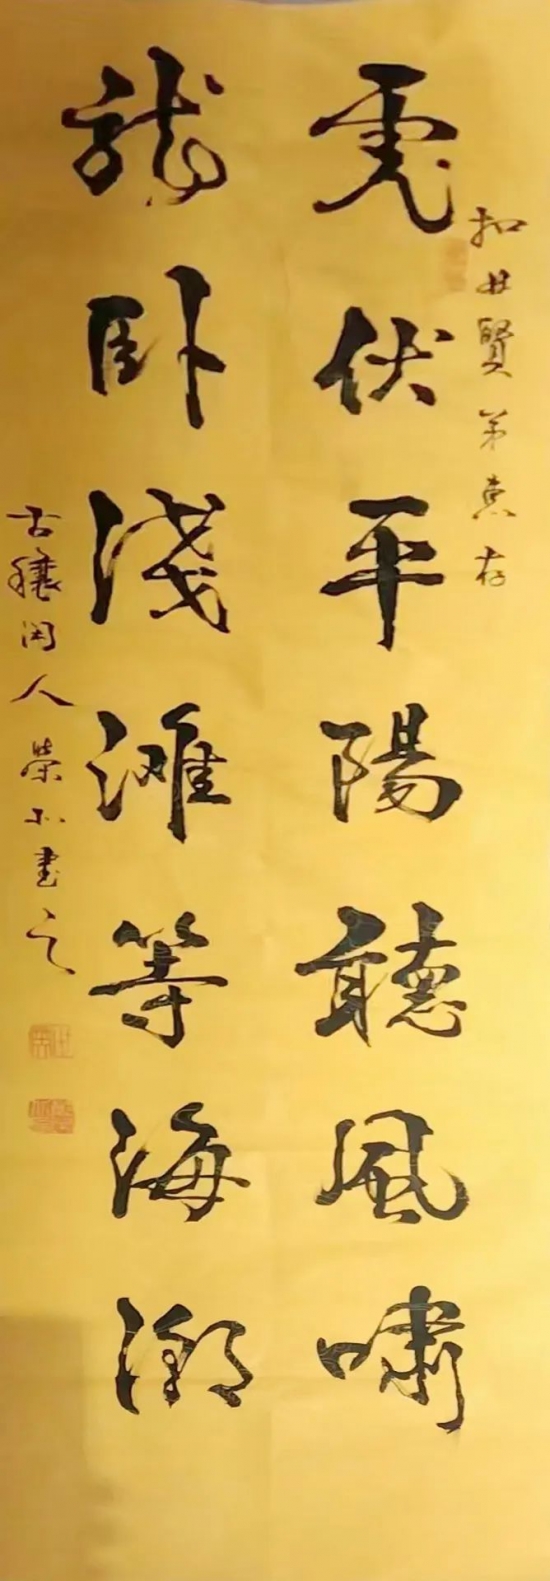 扣世賢弟惠存
虎伏平陽聽風嘯
龍卧淺灘等海潮
古穰闲人榮 書之